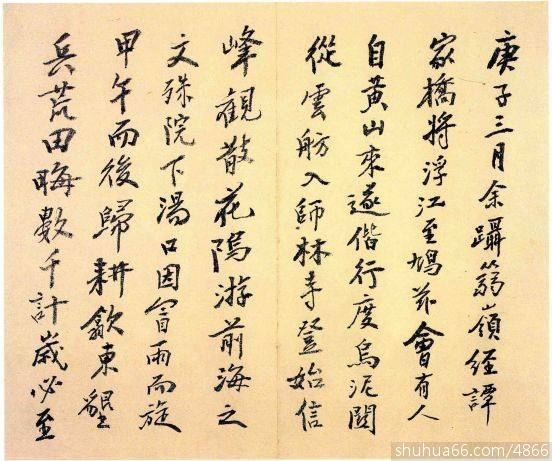 庚子三月余躡篛嶺經譚
家橋將浮江至鳩茲會有人
自黃山來遂偕行度烏泥關
從雲舫入師林寺登始信
峰觀散花隖游前海之
文殊院下湯口因冒雨而旋
甲午而後歸耕歙東墾
兵荒田畮數千計歲必至
shuhua66.com/4866